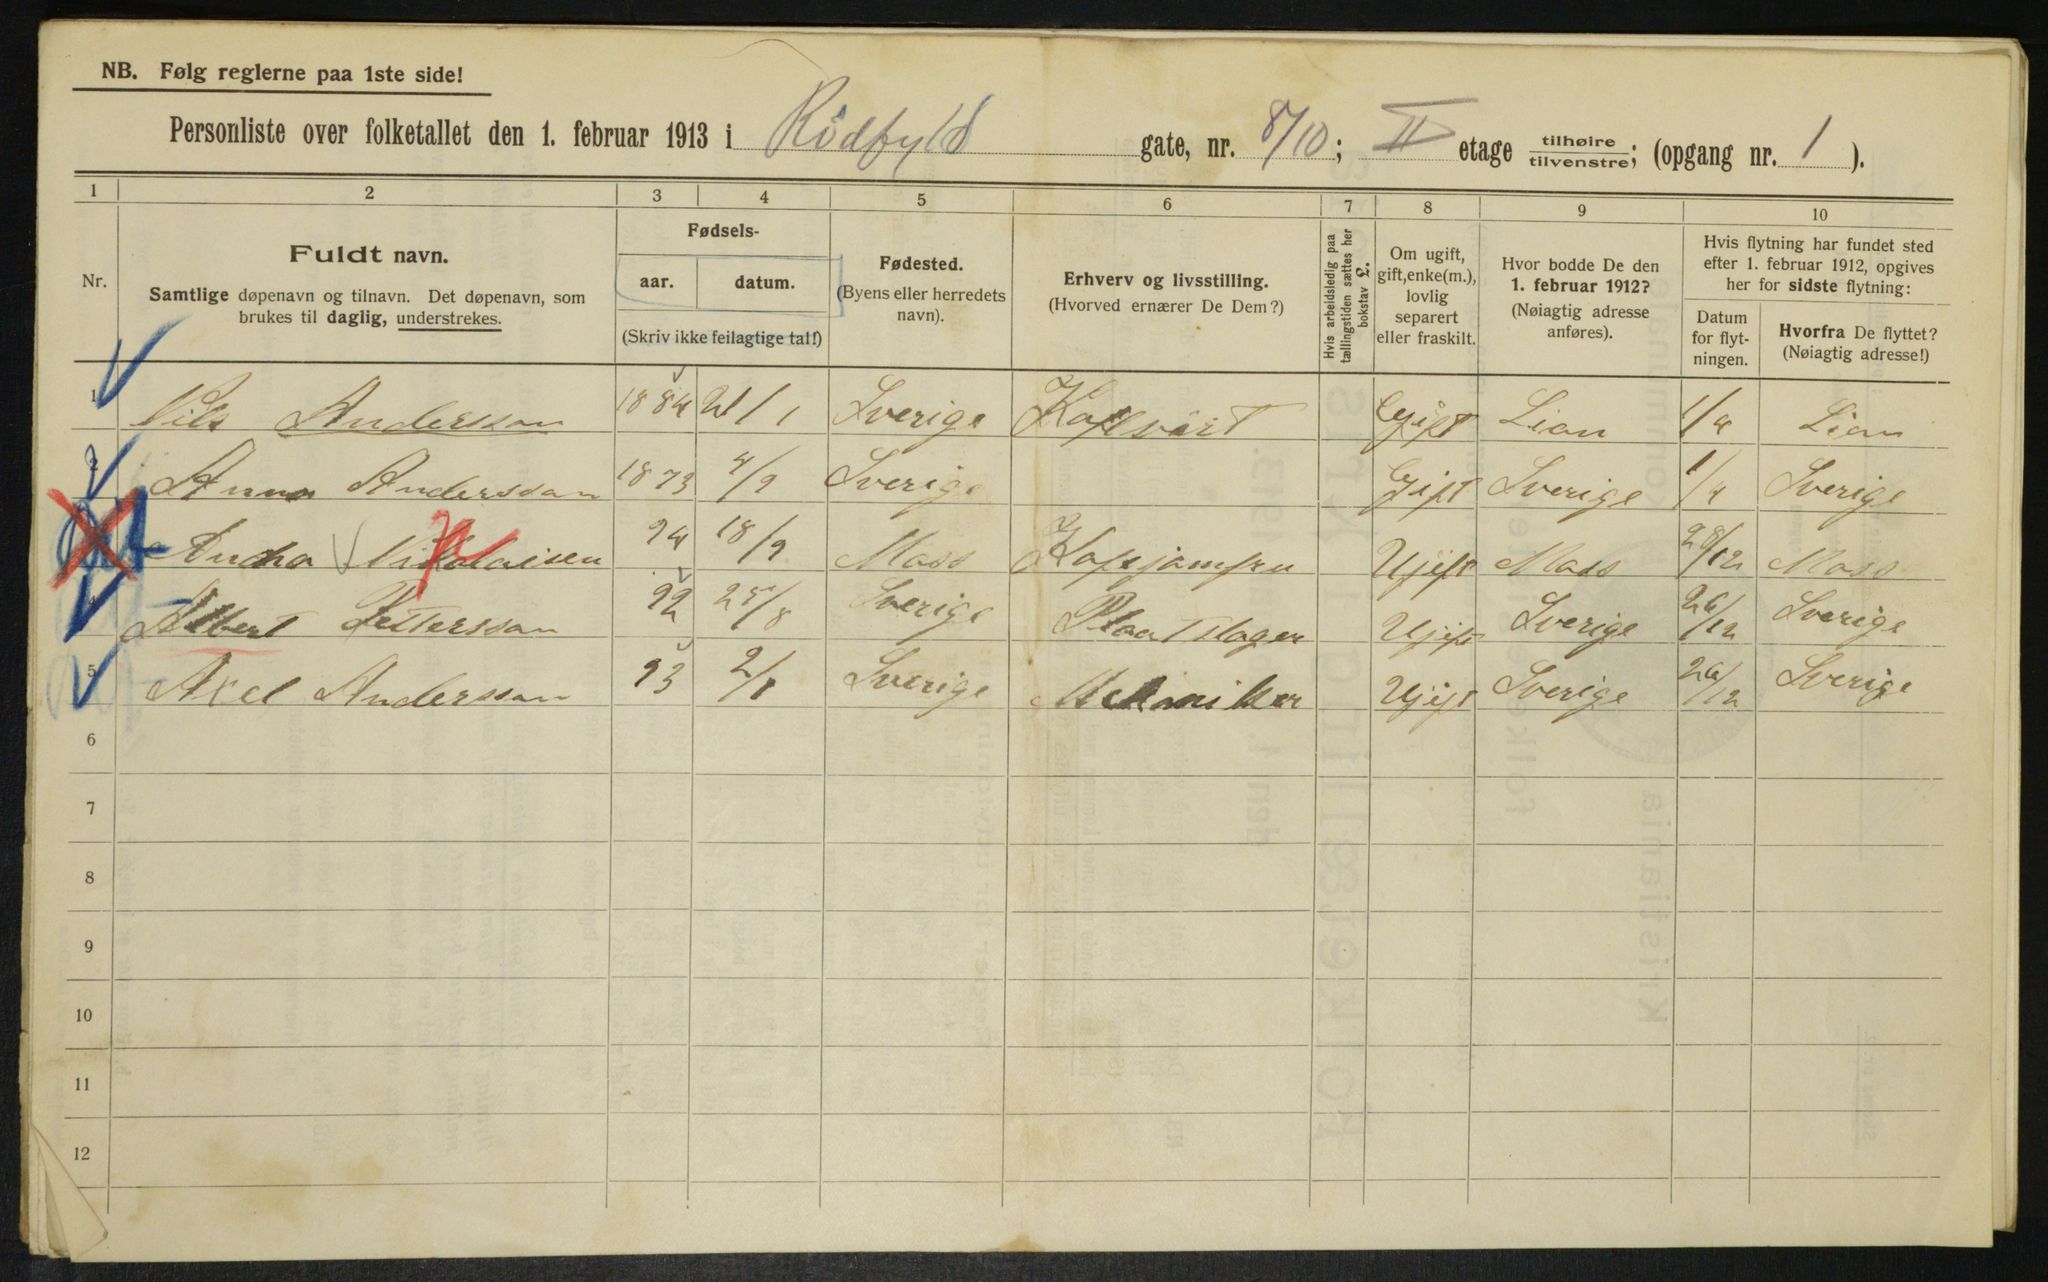 NB. Følg reglerne paa 1ste side!
Personliste over folketallet den 1. februar 1913 i Rödfyld gate, nr. 8/10; II etage tilhøire/tilvenstre; (opgang nr. 1 ).
1 2 3 4 5 6 7 8 9 10
Nr.
Fuldt navn.
Samtlige døpenavn og tilnavn. Det døpenavn, som
brukes til daglig, understrekes.
Fødsels-
aar. datum.
(Skriv ikke feilagtige tal!)
Fødested.
(Byens eller herredets
navn).
Erhverv og livsstilling.
(Hvorved ernærer De Dem?)
Hvis arbeidsledig paa
tællingstiden sættes her
bokstav L.
Om ugift,
gift, enke(m.),
lovlig
separert
eller fraskilt.
Hvor bodde De den
1. februar 1912?
(Nøiagtig adresse
anføres).
Hvis flytning har fundet sted
efter 1. februar 1912, opgives
her for sidste flytning:
Datum
for flyt-
ningen.
Hvorfra De flyttet?
(Nøiagtig adresse!)
1 Nils Andersson 1884 21/1 Sverige Gift Lian 1/4 Lian
2 Anna Anderssan 1873 4/9 Sverige Gift Sverige 1/4 Sverige
Nikolaisen 94 18/9 Moss Ugift Moss 28/12 Moss
4 Albert Pettersson 92 25/8 Sverige Plaatslager Ugift Sverige 26/12 Sverige
5 Axel Andersson 93 2/1 Sverige Ugift Sverige 26/12 Sverige
6
7
8
9
10
11
12